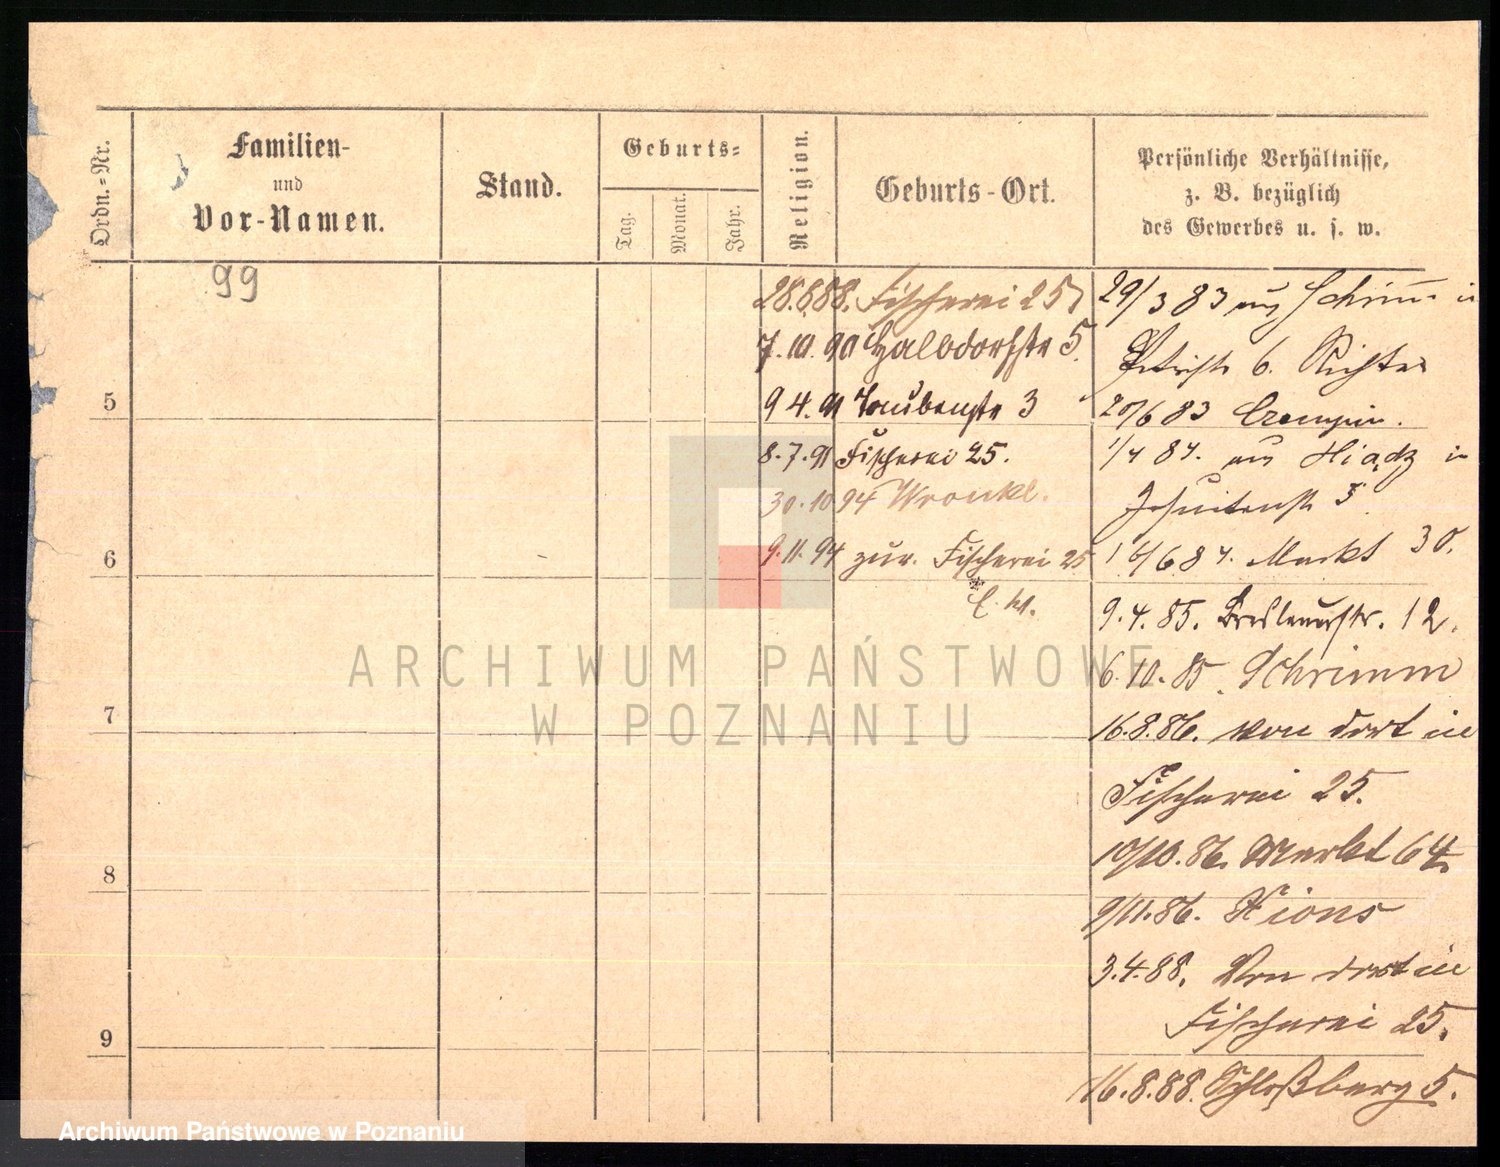 Ordn.-Nr.
Familien-
und
Vor-Namen.
Stand.
Geburts-
Tag.
Monat.
Jahr.
Religion.
Geburts-Ort.
Persönliche Verhältnisse,
z. B. bezüglich
des Gewerbes u. s. w.
99
5
6
7
8
9
28.8.88. Fischerei 25
7.10.90 Halbdorfstr 5.
9 4. 91 Taubenstr 3
8.7.91 Fischerei 25.
30.10 94 Wronkl.
9.11.94 zur. Fischerei 25
29/3 83 aus Schrimm in
6. Richter
20/6 83 Czempin.
1/4 84. aus Xiadz in
Jesuitenstr 5
16/6 84. Markt 30.
9.4.85. Breslauerstr. 12.
6.10.85. Schrimm
16.8.86. von dort in
Fischerei 25.
10/10.86. Markt 64.
9/11.86. Xions
3.4.88. Von dort in
Fischerei 25.
16.8.88. Schloßberg 5.
ARCHIWUM PAŃSTWOWE
W POZNANIU
Archiwum Państwowe w Poznaniu